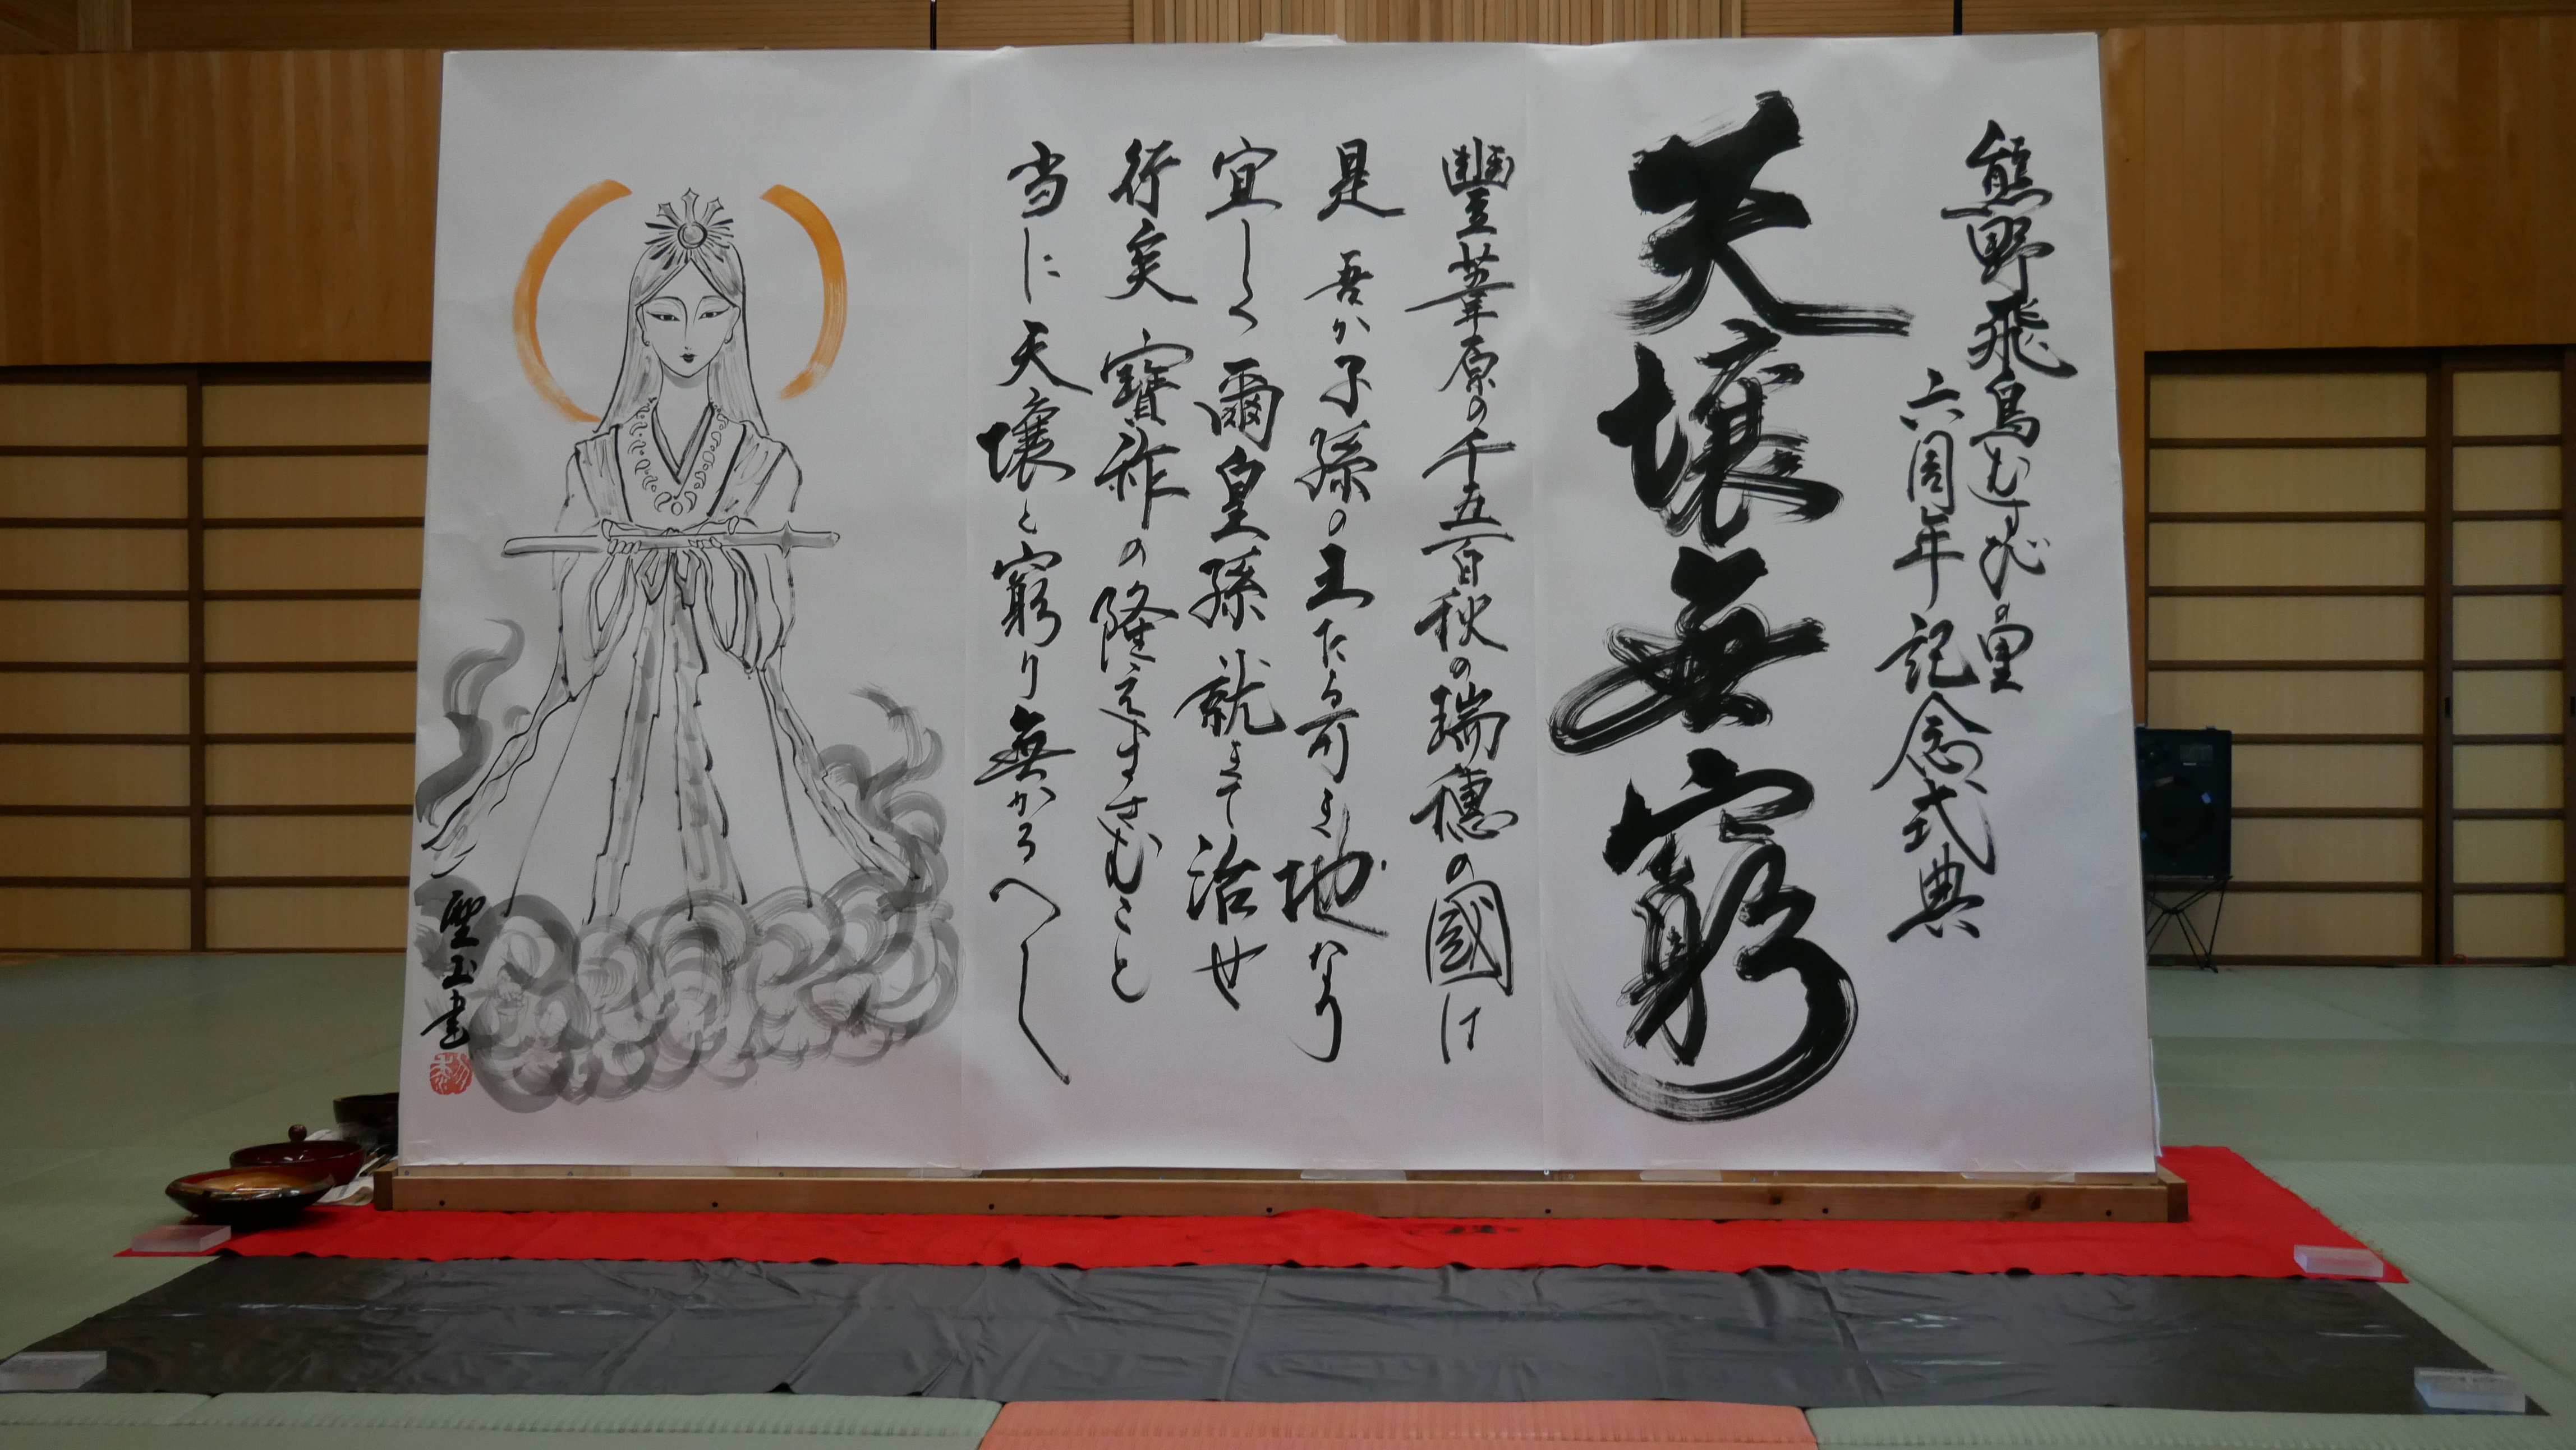 熊野飛鳥むすびの里
六周年記念式典
天壌無窮
豐葦原の千五百秋の瑞穂の國は
是吾か子孫の王たる可き地なり
宜しく爾皇孫就きて治せ
行矣寶祚の隆えまさむこと
当に天壌と窮り無かるへし
聖玉書